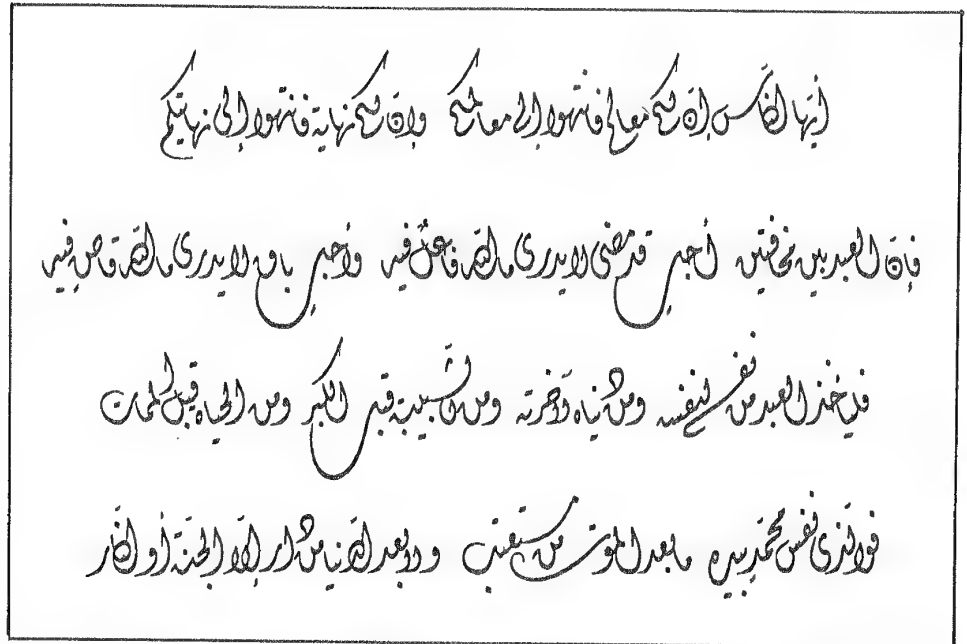 أيها الناس إن لكم معالم فانتهوا إلى معالمكم وإن لكم نهاية فانتهوا إلى نهايتكم
فإن العبد بين مخافتين أجل قد مضى لا يدري ما الله فاعل فيه وأجل باق لا يدري ما الله قاض فيه
فليأخذ العبد من نفسه لنفسه ومن دنياه لآخرته ومن الشبيبة قبل الكبر ومن الحياة قبل الممات
فوالذي نفس محمد بيده ما بعد الموت من مستعتب ولا بعد الدنيا من دار إلا الجنة أو النار